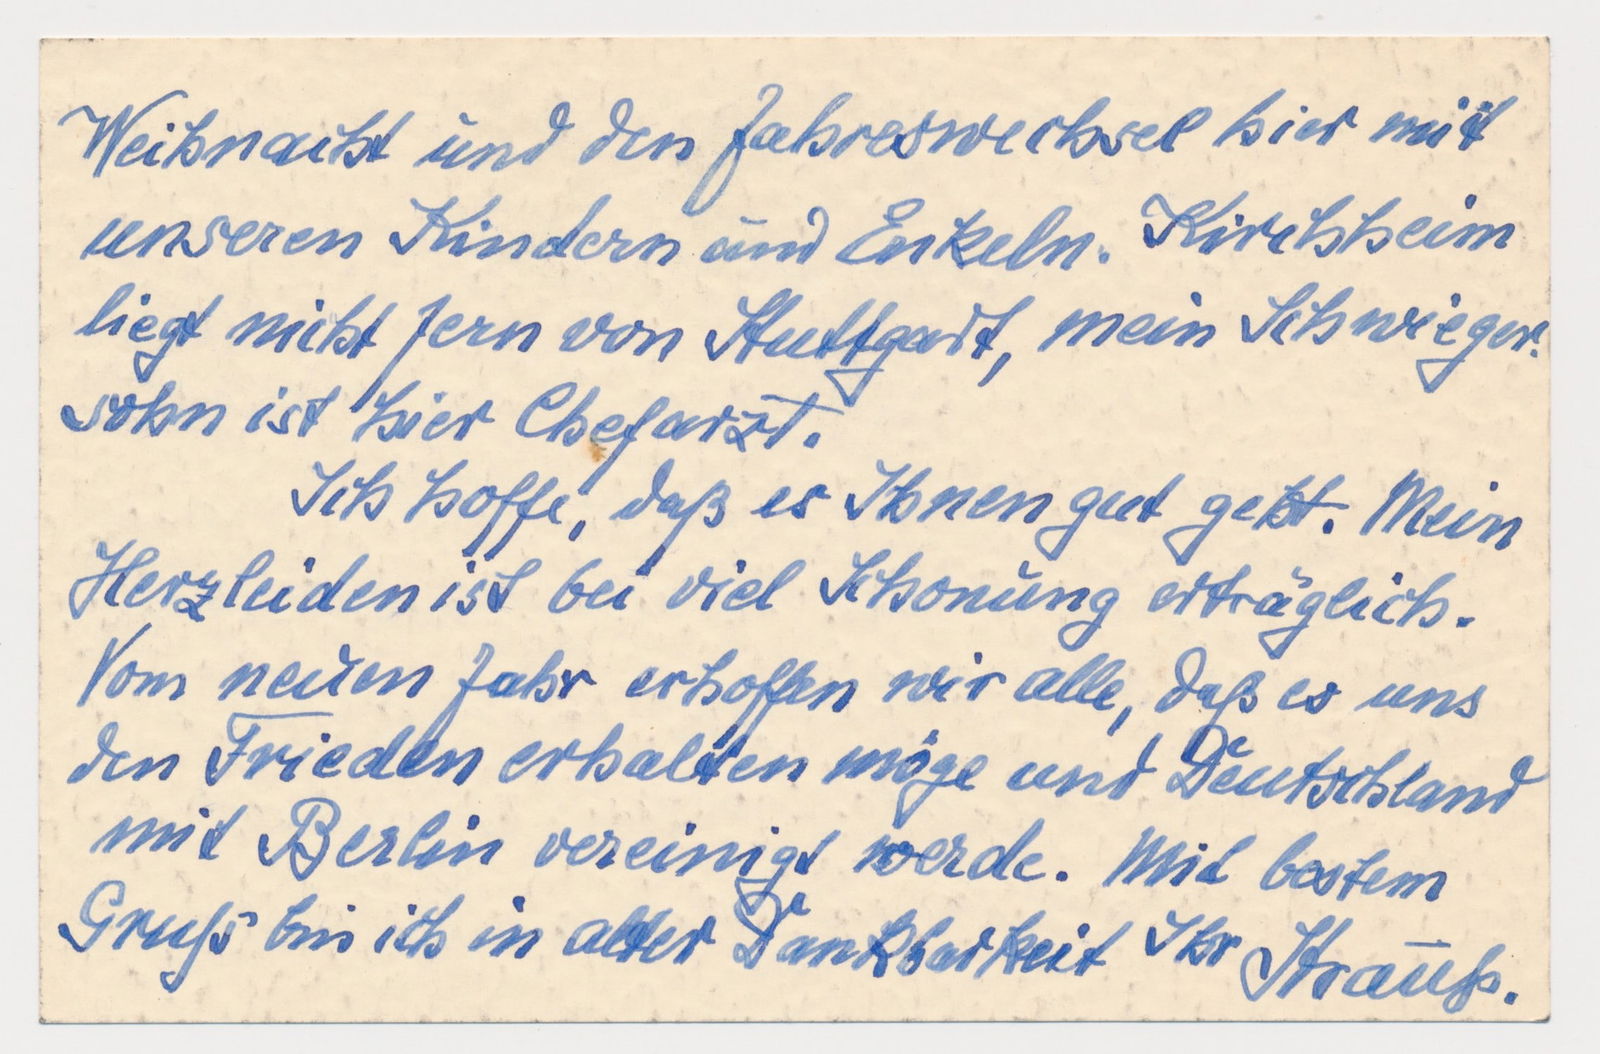 Weihnacht und den Jahreswechsel hier mit
unseren Kindern und Enkeln. Kirchheim
liegt nicht fern von Stuttgart, mein Schwieger-
sohn ist hier Chefarzt.
Ich hoffe, daß es Ihnen gut geht. Mein
Herzleiden ist bei viel Schonung erträglich.
Vom neuen Jahr erhoffen wir alle, daß es uns
den Frieden erhalten möge und Deutschland
mit Berlin vereinigt werde. Mit bestem
Gruß bin ich in alter Dankbarkeit Ihr Strauß.